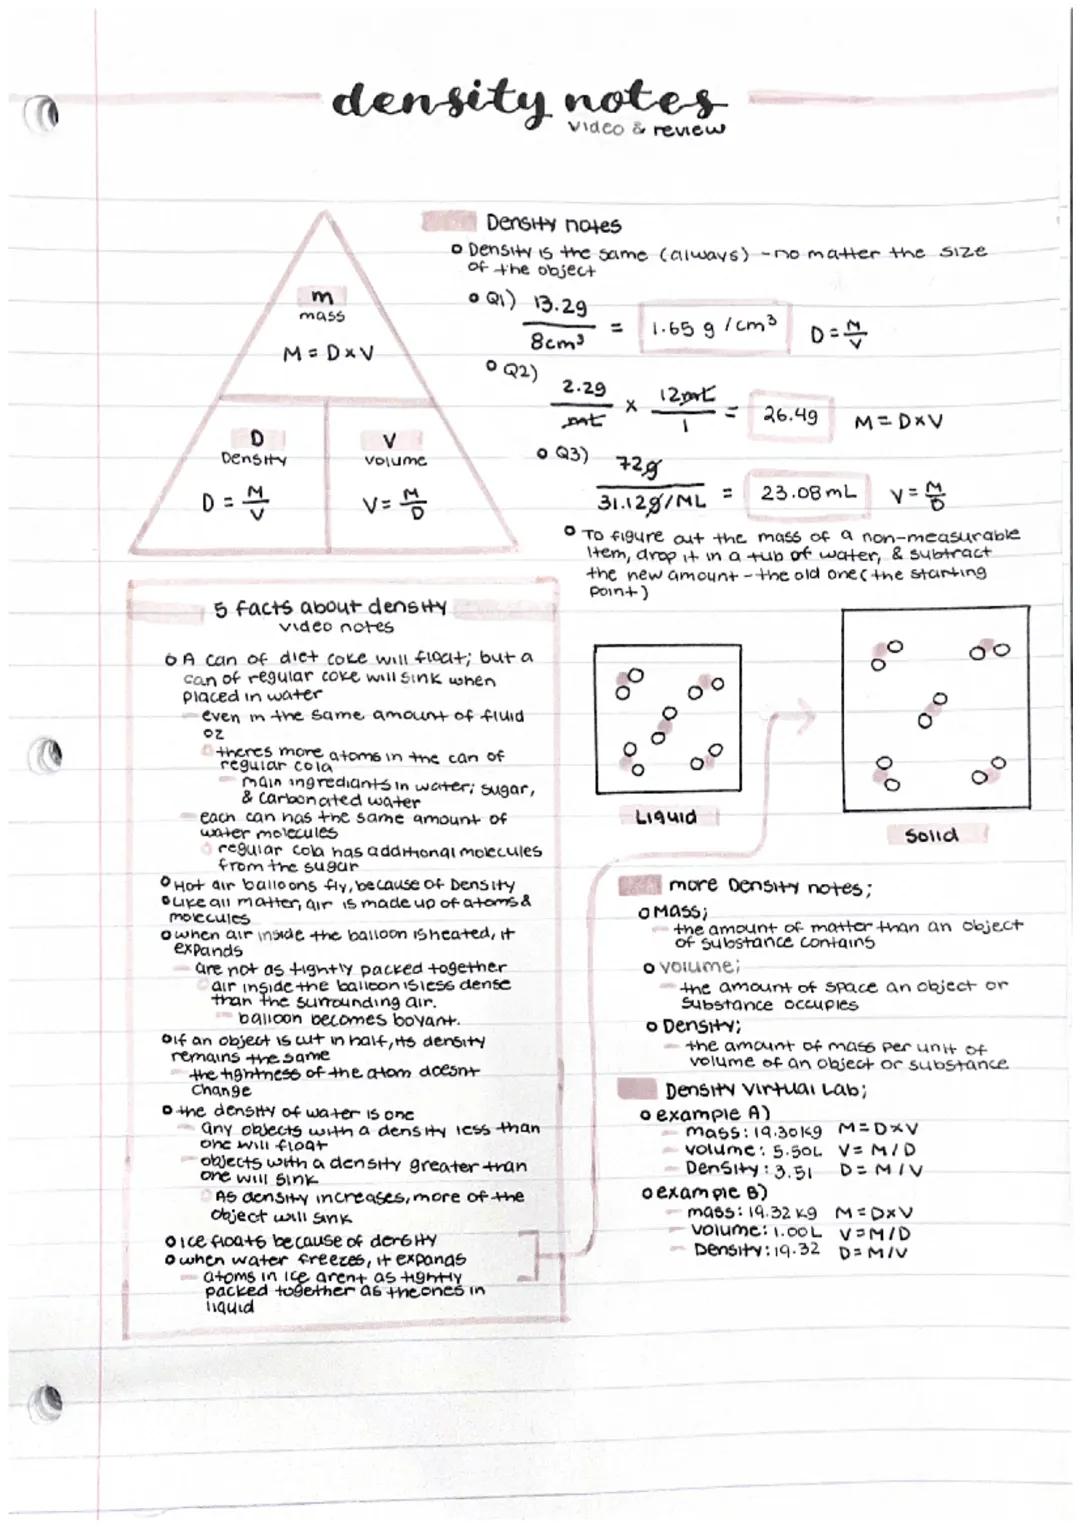 density notes
video & review
m
mass
M = D×V
D
Density
D = M/V
V
volume
V = M/D
Density notes
Density is the same (always) - no matter the size
of the object
Q1) 13.2g / 8cm³ = 1.65 g/cm³ D = M/V
Q2) 2.2g / mL × 12mL / 1 = 26.4g M = D×V
Q3) 72g / 31.12g/ML = 23.08mL V = M/D
To figure out the mass of a non-measurable
item, drop it in a tub of water, & subtract
the new amount - the old one (the starting
point)
5 facts about density
video notes
A can of diet coke will float; but a
can of regular coke will sink when
placed in water
even in the same amount of fluid
oz
theres more atoms in the can of
regular cola
main ingrediants in water; sugar,
& carbonated water
each can has the same amount of
water molecules
regular cola has additional molecules
from the sugar
Hot air balloons fly, because of Density
Like all matter, air is made up of atoms &
molecules
when air inside the balloon is heated, it
expands
are not as tightly packed together
air inside the balloon is less dense
than the surrounding air.
balloon becomes boyant.
If an object is cut in half, its density
remains the same
the tightness of the atom doesnt
change
the density of water is one
any objects with a density less than
one will float
objects with a density greater than
one will sink
As density increases, more of the
object will sink
Ice floats because of density
when water freezes, it expands
atoms in ice arent as tightly
packed together as the ones in
liquid
Liquid
Solid
more Density notes;
Mass;
the amount of matter than an object
of substance contains
volume;
the amount of space an object or
substance occupies
Density;
the amount of mass per unit of
volume of an object or substance
Density Virtual Lab;
example A)
mass: 19.30kg M = D×V
volume: 5.50L V = M/D
Density: 3.51 D = M/V
example B)
mass: 19.32 kg M = D×V
volume: 1.00L V = M/D
Density: 19.32 D = M/V